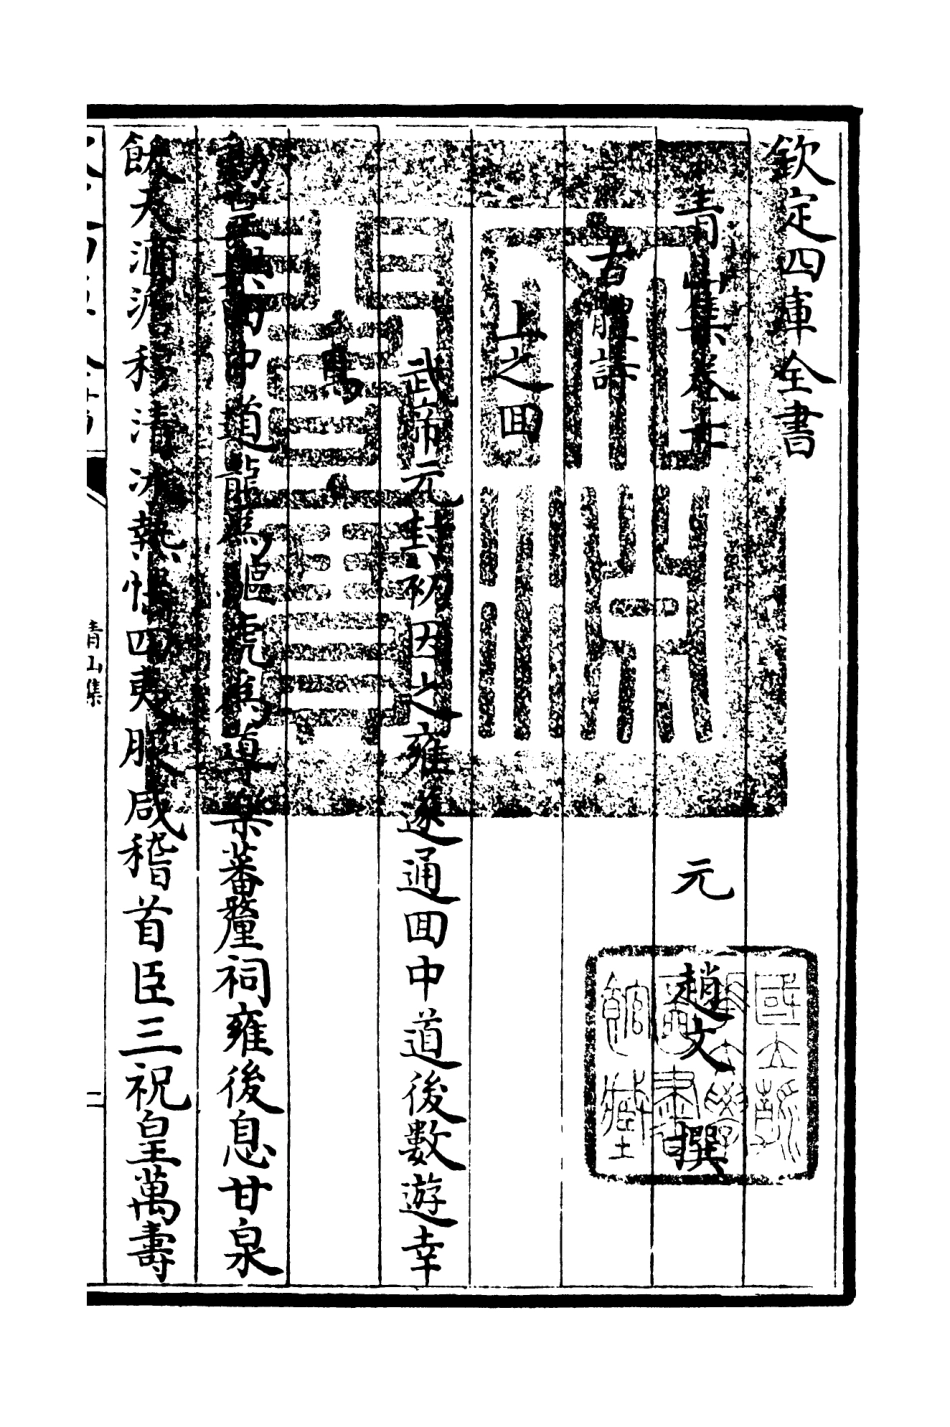 欽定四庫全書
青山集卷七
元 趙文 撰
古體詩
上之囬
武帝元封初因之雍遂通囬中道後數遊幸
焉
動皇輿 中道龍為驅虎為導樂蕃釐祠雍後息甘泉
飲天酒澹 清 熱惱四夷服咸稽首臣三祝皇萬壽
青山集
一